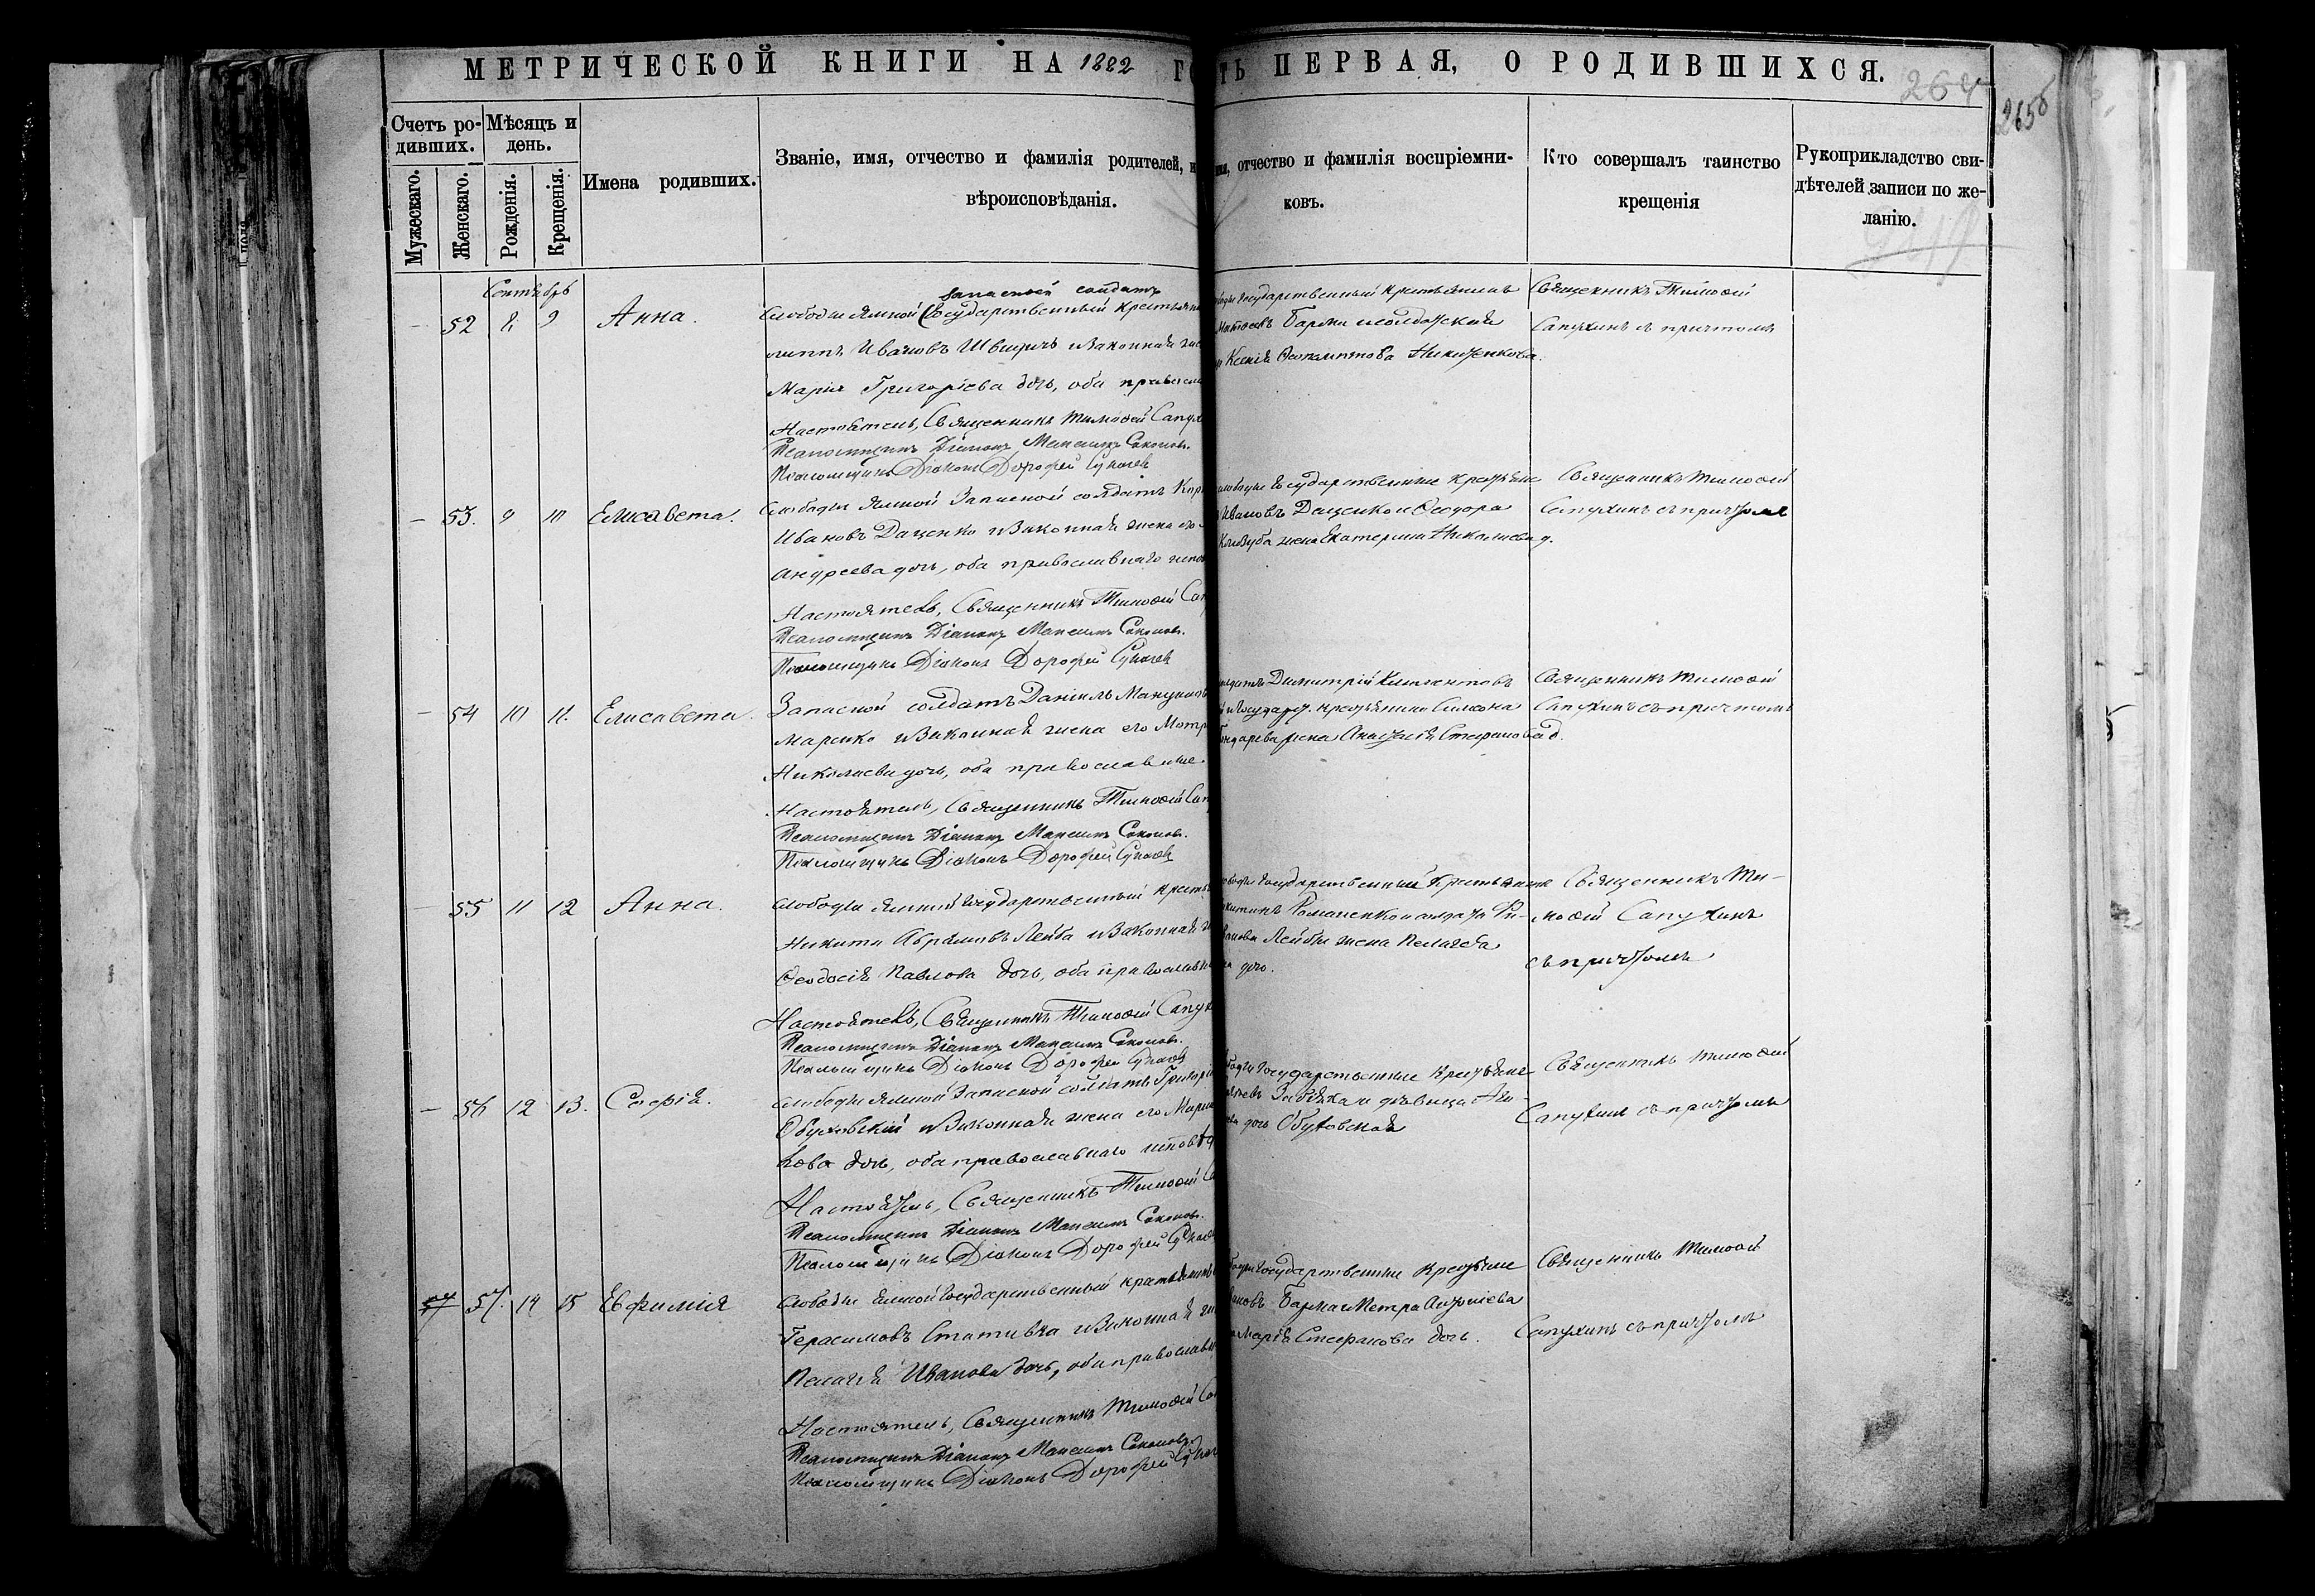 МЕТРИЧЕСКОЙ КНИГИ НА 1882 ГО
ТЬ ПЕРВАЯ, О РОДИВШИХСЯ.
264
265б
Счетъ родивших.
Мѣсяцъ и день.
Мужескаго.
Женскаго.
Рожденія.
Крещенія.
Имена родивших.
Званіе, имя, отчество и фамилія родителей, и
вѣроисповѣданія.
отчество и фамилія воспріемни-
ковъ.
Кто совершалъ таинство
крещенія
Рукоприкладство сви-
дѣтелей записи по же-
ланію.
Сентябрь
— 52 8 9 Анна.
запасный солдатъ
Слободы Ямной Государственный крестьянин
Ивановъ Швыричъ и законная
Марія Григоріева дочь, оба православн
Настоятель, Священникъ Тимоѳей Сапух
Псаломщикъ Діаконъ Максимъ Соколов.
Псаломщикъ Діаконъ Дорофей Сукачев
Государственный крестьянинъ
Матвѣевъ Барма и солдатская
Ксенія Никитенкова.
Священникъ Тимоѳей
Сапухинъ съ причтомъ
— 53. 9 10 Елисавета.
Слободы Ямной Запасной солдатъ Кир
Ивановъ Даценко и законная жена его
Андреева дочь, оба православнаго испов
Настоятель, Священникъ Тимоѳей Сап
Псаломщикъ Діаконъ Максимъ Соколов.
Псаломщикъ Діаконъ Дорофей Сукачев
Государственные крестьяне
Ивановъ Даценко и Ѳеодора
жена Екатерина Николаева д.
Священникъ Тимоѳей
Сапухинъ съ причтомъ
— 54 10 11. Елисавета.
Запасной солдатъ Даніилъ Мануилов
Маренко и законная жена его Матр
Николаева дочь, оба православные.
Настоятель, Священникъ Тимоѳей Сап
Псаломщикъ Діаконъ Максимъ Соколов.
Псаломщикъ Діаконъ Дорофей Сукачев
Димитрій Климентовъ
и Государ. крестьянина Симеона
жена Анастасія Стефанова д.
Священникъ Тимоѳей
Сапухинъ съ причтомъ
— 55 11 12 Анна.
Слободы Ямной Государственный кресть
Никита Абрамовъ Лейба и законная
Ѳеодосія Павлова дочь, оба православн
Настоятель, Священникъ Тимоѳей Сапух
Псаломщикъ Діаконъ Максимъ Соколов.
Псаломщикъ Діаконъ Дорофей Сукачев
Государственный крестьянин
Романенко и солдата Фи-
Лейбы жена Пелагея
дочь.
Священникъ Ти-
моѳей Сапухинъ
съ причтомъ
— 56 12 13. Софія.
Слободы Ямной Запасной солдатъ Григорі
Обуховскій и законная жена его Марі
кова дочь, оба православнаго исповѣд
Настоятель, Священникъ Тимоѳей Са
Псаломщикъ Діаконъ Максимъ Соколов.
Псаломщикъ Діаконъ Дорофей Сукачев
Государственные крестьяне
и дѣвица Ан-
дочь Обуховская
Священникъ Тимоѳей
Сапухинъ съ причтомъ
57 57. 14 15 Евфимія
Слободы Ямной Государственный крестьянинъ
Герасимовъ Стативка и законная
Пелагія Иванова дочь, оба православн
Настоятель, Священникъ Тимоѳей Са
Псаломщикъ Діаконъ Максимъ Соколов.
Псаломщикъ Діаконъ Дорофей Сукач
Государственные крестьяне
Барма и Петра Антоніева
Марія Стефанова дочь.
Священникъ Тимоѳей
Сапухинъ съ причтомъ